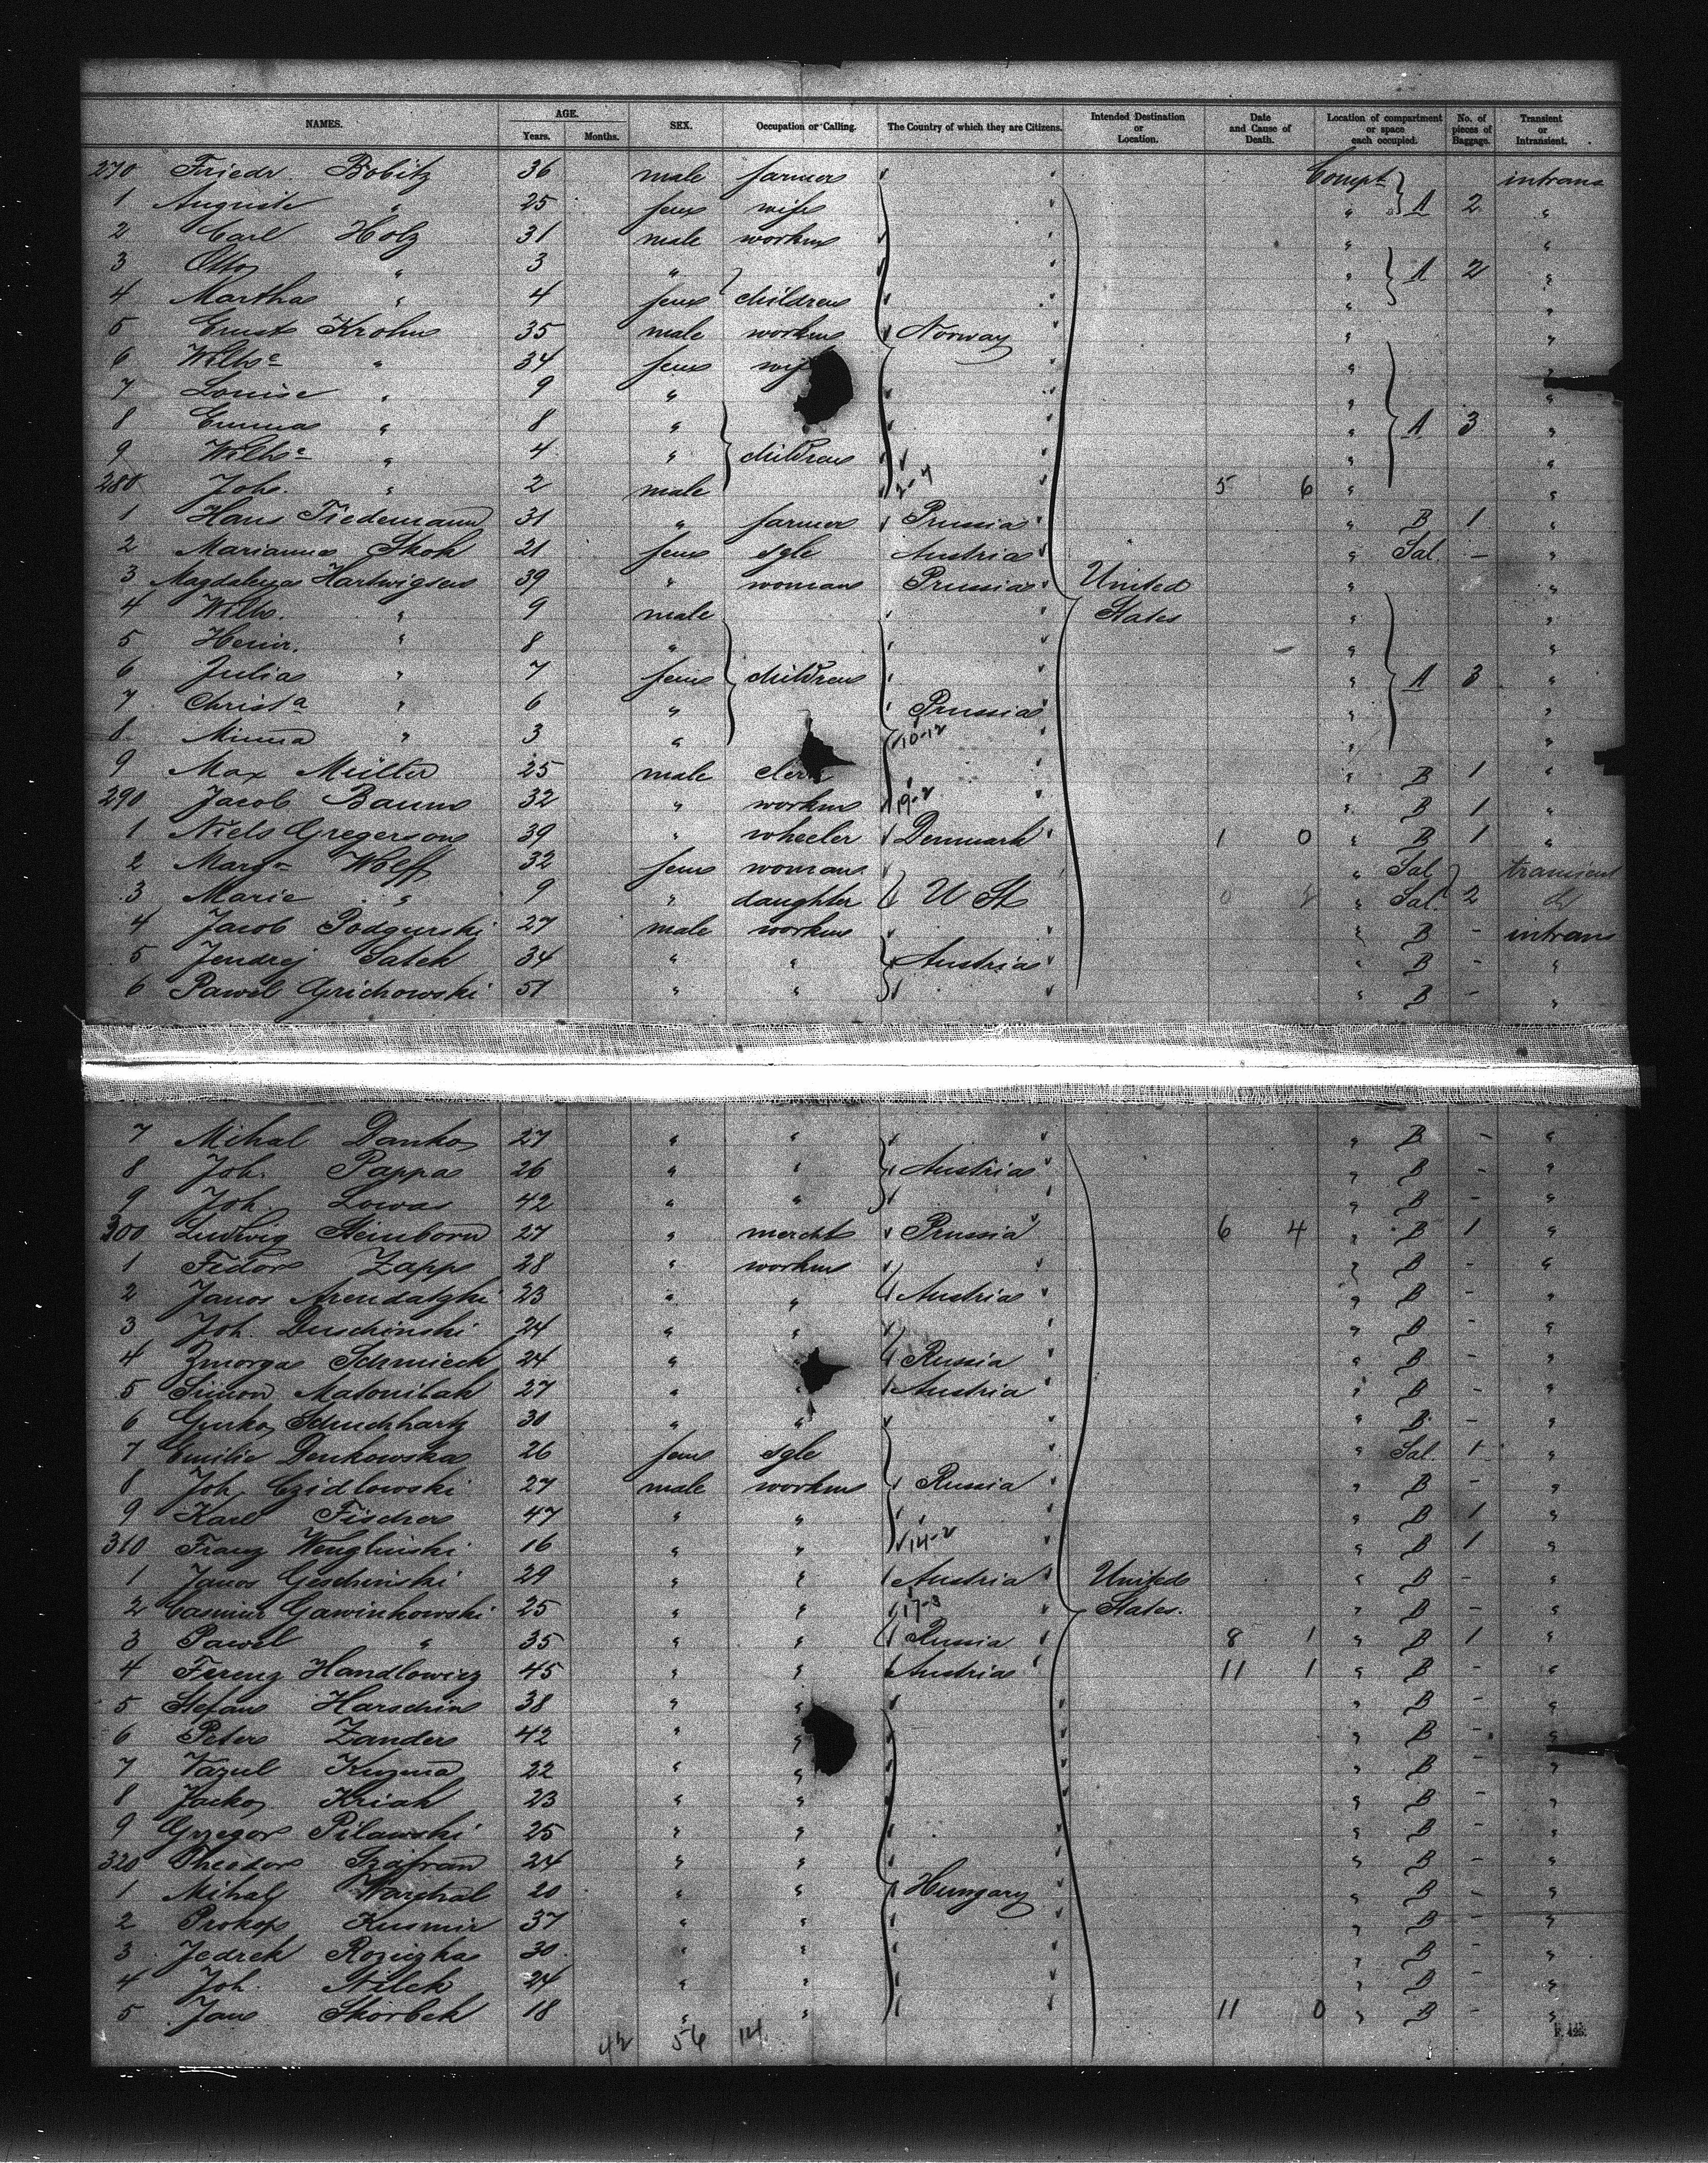 NAMES. AGE. Years. Months. SEX. Occupation or Calling. The Country of which they are Citizens. Intended Destination or Location. Date and Cause of Death. Location of compartment or space each occupied. No. of pieces of Baggage. Transient or Intransient.
270 Friedr. Bobitz 36 male farmer Compt intrans
1 Auguste " 25 fem wife " A 2 "
2 Carl Holz 31 male workm " "
3 Otto " 3 " " A 2 "
4 Martha " 4 fem children " "
5 Ernst Krohn 35 male workm Norway " "
6 Wilhe " 34 fem wife " "
7 Louise " 9 " " "
8 Emma " 8 " " A 3 "
9 Wilhe " 4 " children " "
280 Joh. " 2 male 2-4 5 6 " "
1 Hans Tiedemann 31 " farmer Prussia " B 1 "
2 Marianna Skok 21 fem sgle Austria " Sal. - "
3 Magdalena Hartwigsen 39 " woman Prussia United " "
4 Wilh. " 9 male States " "
5 Heinr. " 8 " " "
6 Julia " 7 fem children " A 3 "
7 Christa " 6 " Prussia " "
8 Minna " 3 " 10-12 " "
9 Max Müller 25 male clerk " B 1 "
290 Jacob Baum 32 " workm 19-2 " B 1 "
1 Niels Gregersen 39 " wheeler Denmark 1 0 " B 1 "
2 Marg. Wolff 32 fem woman " Sal transient
3 Marie " 9 " daughter U St " Sal. 2
4 Jacob Podgurski 27 male workm " B - intrans
5 Jendrej Satek 34 " " Austria " B - "
6 Pawel Grichowski 51 " " " B - "
7 Mihal Danko 27 " " " B - "
8 Joh. Pappa 26 " " Austria " B - "
9 Joh. Lowas 42 " " " B - "
300 Ludwig Steinborn 27 " mercht Prussia 6 4 " B 1 "
1 Fedor Zapp 28 " workm " B - "
2 Janos Arendatzki 23 " " Austria " B - "
3 Joh. Duschinski 24 " " " B - "
4 Zmorga Schmiech 24 " Russia " B - "
5 Simon Matonibak 27 " Austria " B - "
6 Gurko 30 " " " B - "
7 Emilie Denkowska 26 fem sgle " Sal. 1 "
8 Joh. Czidlowski 27 male workm Russia " B - "
9 Karl Fischer 47 " " " B 1 "
310 Franz Wenglinski 16 " " 14-2 " B 1 "
1 Janos Geschinski 29 " " Austria United " B - "
2 Casimir Gawinkowski 25 " " 17-3 States. " B - "
3 Pawel " 35 " " Russia 8 1 " B 1 "
4 Ferenz Handlowicz 45 " " Austria 11 1 " B - "
5 Stefan Harschin 38 " " " B - "
6 Peter Zander 42 " " " B - "
7 Vazul Kuzma 22 " " " B - "
8 Jacko Kriak 23 " " " B - "
9 Grzegor Pilawski 25 " " " B - "
320 Theodor Szafran 24 " " " B - "
1 Mihaly Warchal 20 " " Hungary " B - "
2 Prokop Kusmir 37 " " " B - "
3 Jedrek 30 " " " B - "
4 Joh. Stilek 24 " " " B - "
5 Jan Skorbek 18 " " 11 0 " B - "
42 56 14